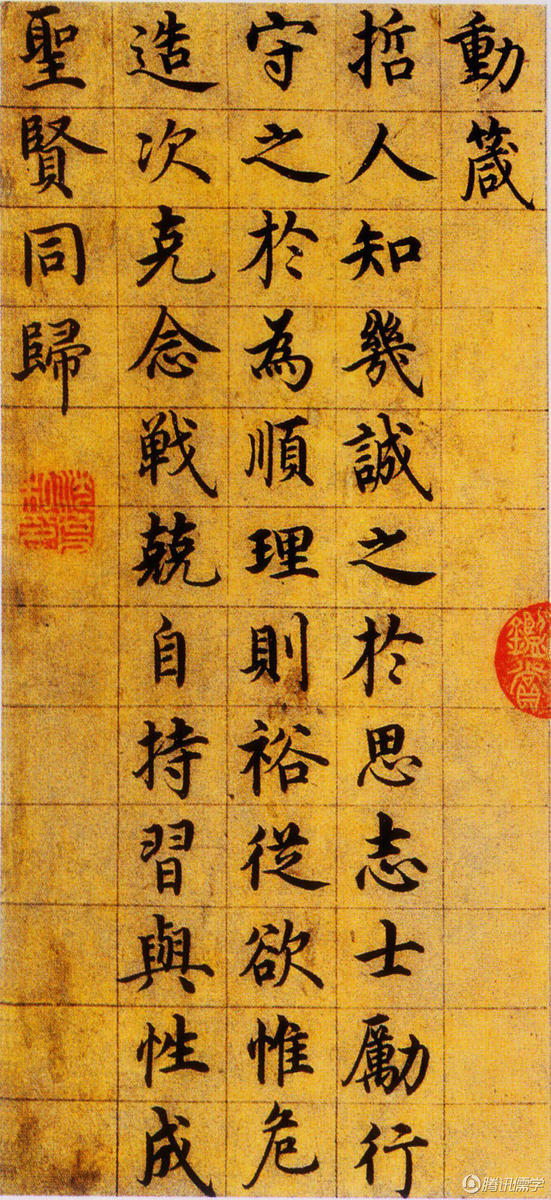 動箴
哲人知幾誠之於思志士勵行
守之於為順理則裕從欲惟危
造次克念戦兢自持習與性成
聖賢同歸
鑑賞
腾讯儒学